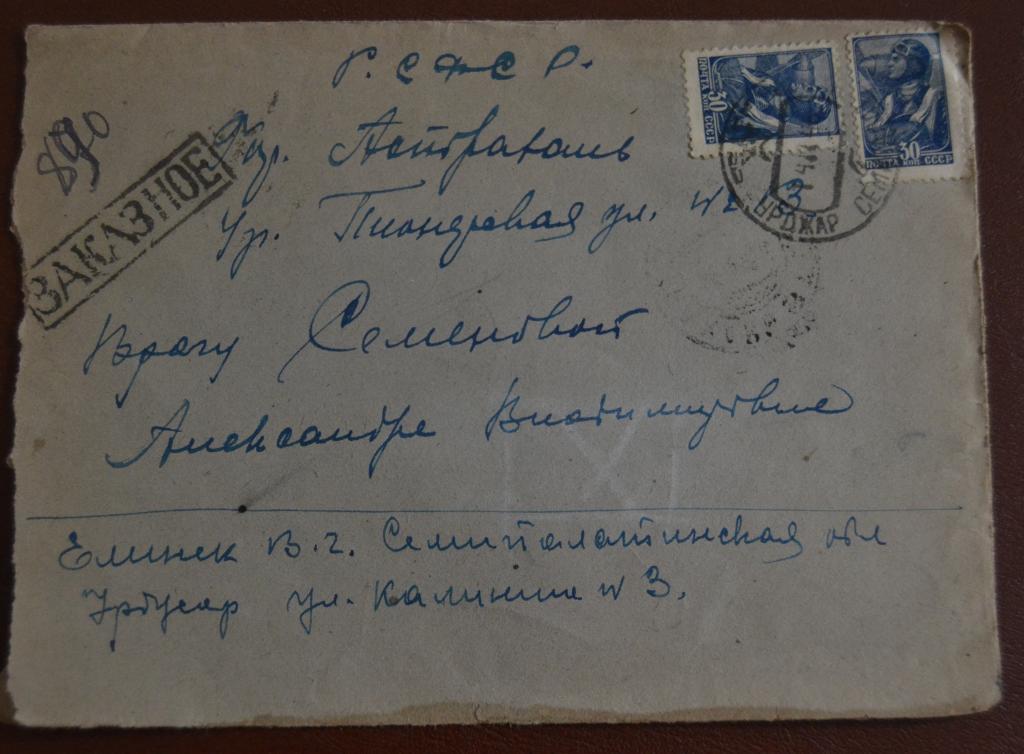 Р. С Ф С Р.
890
ЗАКАЗНОЕ
гор. Астрахань
Ур. Пионерская ул. № 3
Врачу Семеновой
Александре Владимировне
Елинек В. Г. Семипалатинская обл
Урджар ул. Калинина № 3.
ПОЧТА 30 КОП СССР
ПОЧТА 30 КОП СССР
УРДЖАР